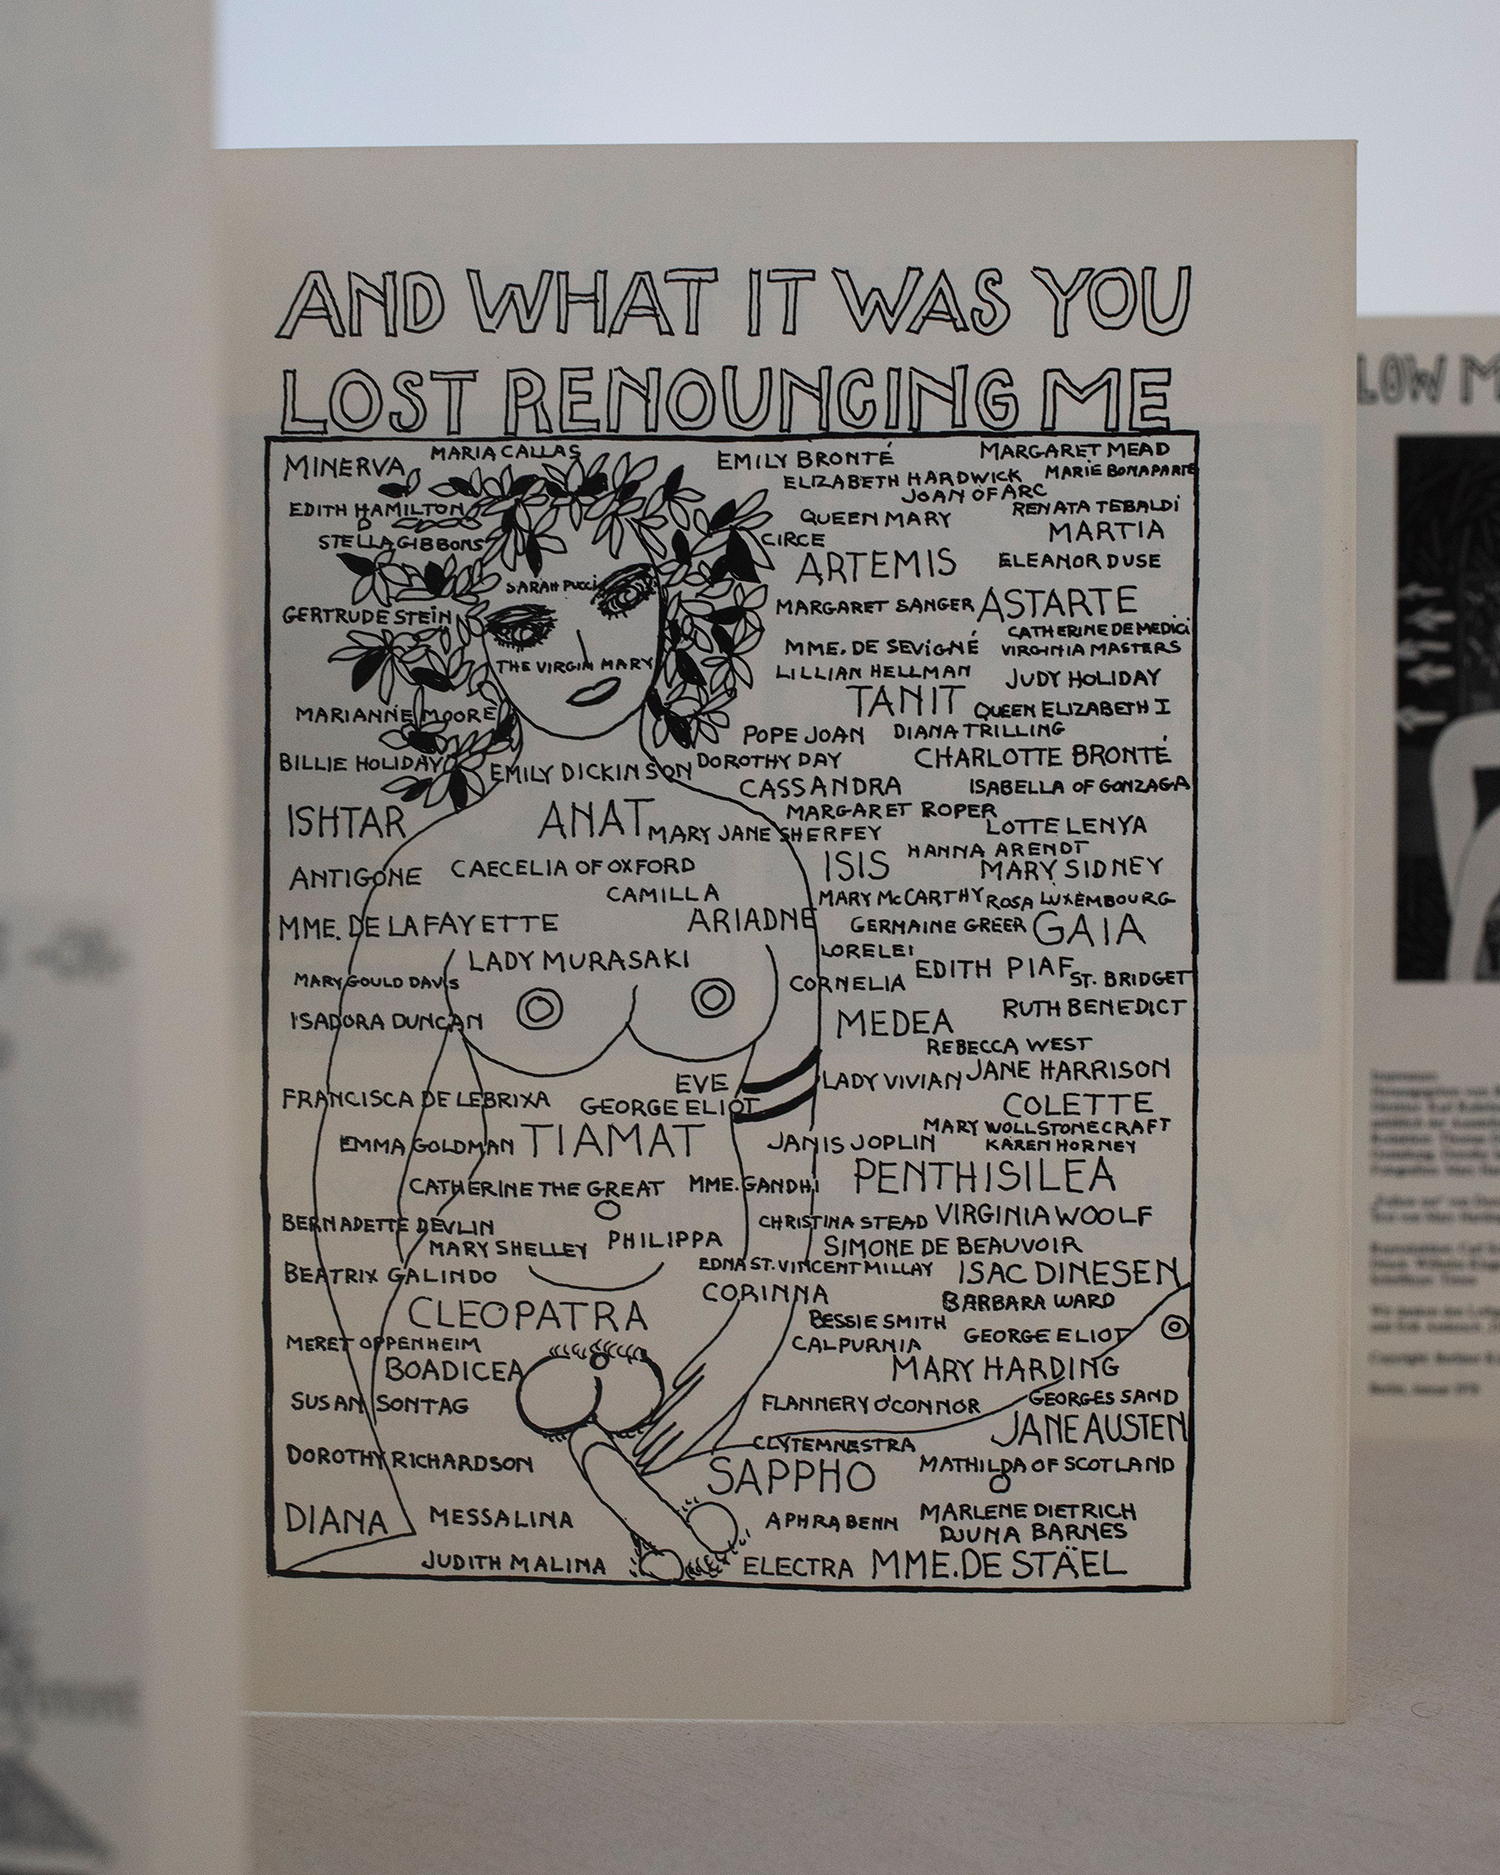 AND WHAT IT WAS YOU
LOST RENOUNCING ME
MINERVA
MARIA CALLAS
EMILY BRONTÉ
MARGARET MEAD
ELIZABETH HARDWICK
MARIE BONAPARTE
JOAN OF ARC
EDITH HAMILTON
RENATA TEBALDI
QUEEN MARY
MARTIA
STELLA GIBBONS
CIRCE
ARTEMIS
ELEANOR DUSE
SARAH PUCCI
GERTRUDE STEIN
MARGARET SANGER
ASTARTE
CATHERINE DE MEDICI
MME. DE SEVIGNÉ
VIRGINIA MASTERS
THE VIRGIN MARY
LILLIAN HELLMAN
JUDY HOLIDAY
TANIT
QUEEN ELIZABETH I
MARIANNE MOORE
POPE JOAN
DIANA TRILLING
BILLIE HOLIDAY
EMILY DICKINSON
DOROTHY DAY
CHARLOTTE BRONTÉ
CASSANDRA
ISABELLA OF GONZAGA
ISHTAR
ANAT
MARGARET ROPER
MARY JANE SHERFEY
LOTTE LENYA
HANNA ARENDT
ANTIGONE
CAECELIA OF OXFORD
ISIS
MARY SIDNEY
CAMILLA
MARY McCARTHY
ROSA LUXEMBOURG
MME. DE LA FAYETTE
ARIADNE
GERMAINE GREER
GAIA
LORELEI
LADY MURASAKI
EDITH PIAF
ST. BRIDGET
MARY GOULD DAVIS
CORNELIA
RUTH BENEDICT
ISADORA DUNCAN
MEDEA
REBECCA WEST
EVE
LADY VIVIAN
JANE HARRISON
FRANCISCA DE LEBRIXA
GEORGE ELIOT
COLETTE
MARY WOLLSTONECRAFT
EMMA GOLDMAN
TIAMAT
JANIS JOPLIN
KAREN HORNEY
CATHERINE THE GREAT
MME. GANDHI
PENTHISILEA
BERNADETTE DEVLIN
CHRISTINA STEAD
VIRGINIA WOOLF
MARY SHELLEY
PHILIPPA
SIMONE DE BEAUVOIR
BEATRIX GALINDO
EDNA ST. VINCENT MILLAY
ISAC DINESEN
CORINNA
BARBARA WARD
CLEOPATRA
BESSIE SMITH
GEORGE ELIOT
MERET OPPENHEIM
CALPURNIA
BOADICEA
MARY HARDING
SUSAN SONTAG
FLANNERY O'CONNOR
GEORGES SAND
JANE AUSTEN
CLYTEMNESTRA
DOROTHY RICHARDSON
SAPPHO
MATHILDA OF SCOTLAND
DIANA
MESSALINA
APHRA BENN
MARLENE DIETRICH
DJUNA BARNES
JUDITH MALINA
ELECTRA
MME. DE STÄEL
LOW M